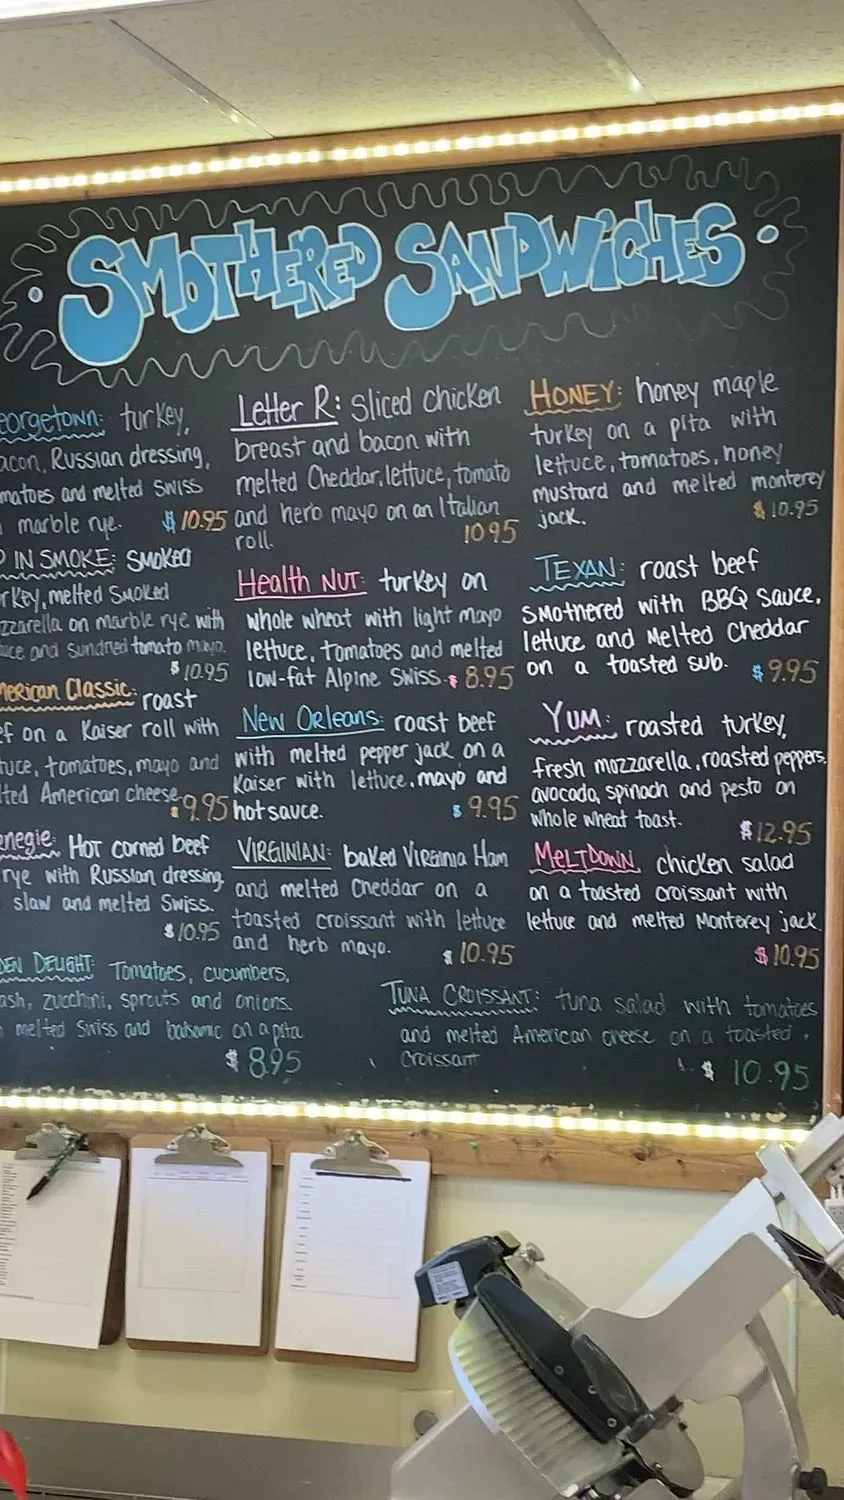 SMOTHERED SANDWICHES
eorgetown: turkey,
acon, Russian dressing,
matoes and melted Swiss
marble rye. $10.95
IN SMOKE: SMOKED
rkey, melted Smoked
zzarella on marble rye with
uce and sundried tomato mayo.
$10.95
merican Classic: roast
ef on a Kaiser roll with
tuce, tomatoes, mayo and
lted American cheese. $9.95
negie: Hot corned beef
rye with Russian dressing,
slaw and melted Swiss.
$10.95
DEN DELIGHT: Tomatoes, cucumbers,
ash, zucchini, sprouts and onions.
melted Swiss and balsamic on a pita
$8.95
Letter R: Sliced chicken
breast and bacon with
melted Cheddar, lettuce, tomato
and herb mayo on an Italian
roll. 10.95
Health Nut: turkey on
whole wheat with light mayo
lettuce, tomatoes and melted
low-fat Alpine Swiss. $8.95
New Orleans: roast beef
with melted pepper jack on a
Kaiser with lettuce, mayo and
hot sauce. $9.95
VIRGINIAN: baked Virginia Ham
and melted Cheddar on a
toasted croissant with lettuce
and herb mayo. $10.95
HONEY: honey maple
turkey on a pita with
lettuce, tomatoes, honey
mustard and melted monterey
jack. $10.95
TEXAN: roast beef
smothered with BBQ sauce,
lettuce and Melted Cheddar
on a toasted sub. $9.95
YUM: roasted turkey,
fresh mozzarella, roasted peppers,
avocado, spinach and pesto on
whole wheat toast. $12.95
MELTDOWN chicken salad
on a toasted croissant with
lettuce and melted Monterey jack.
$10.95
TUNA CROISSANT: tuna salad with tomatoes
and melted American cheese on a toasted
Croissant $10.95